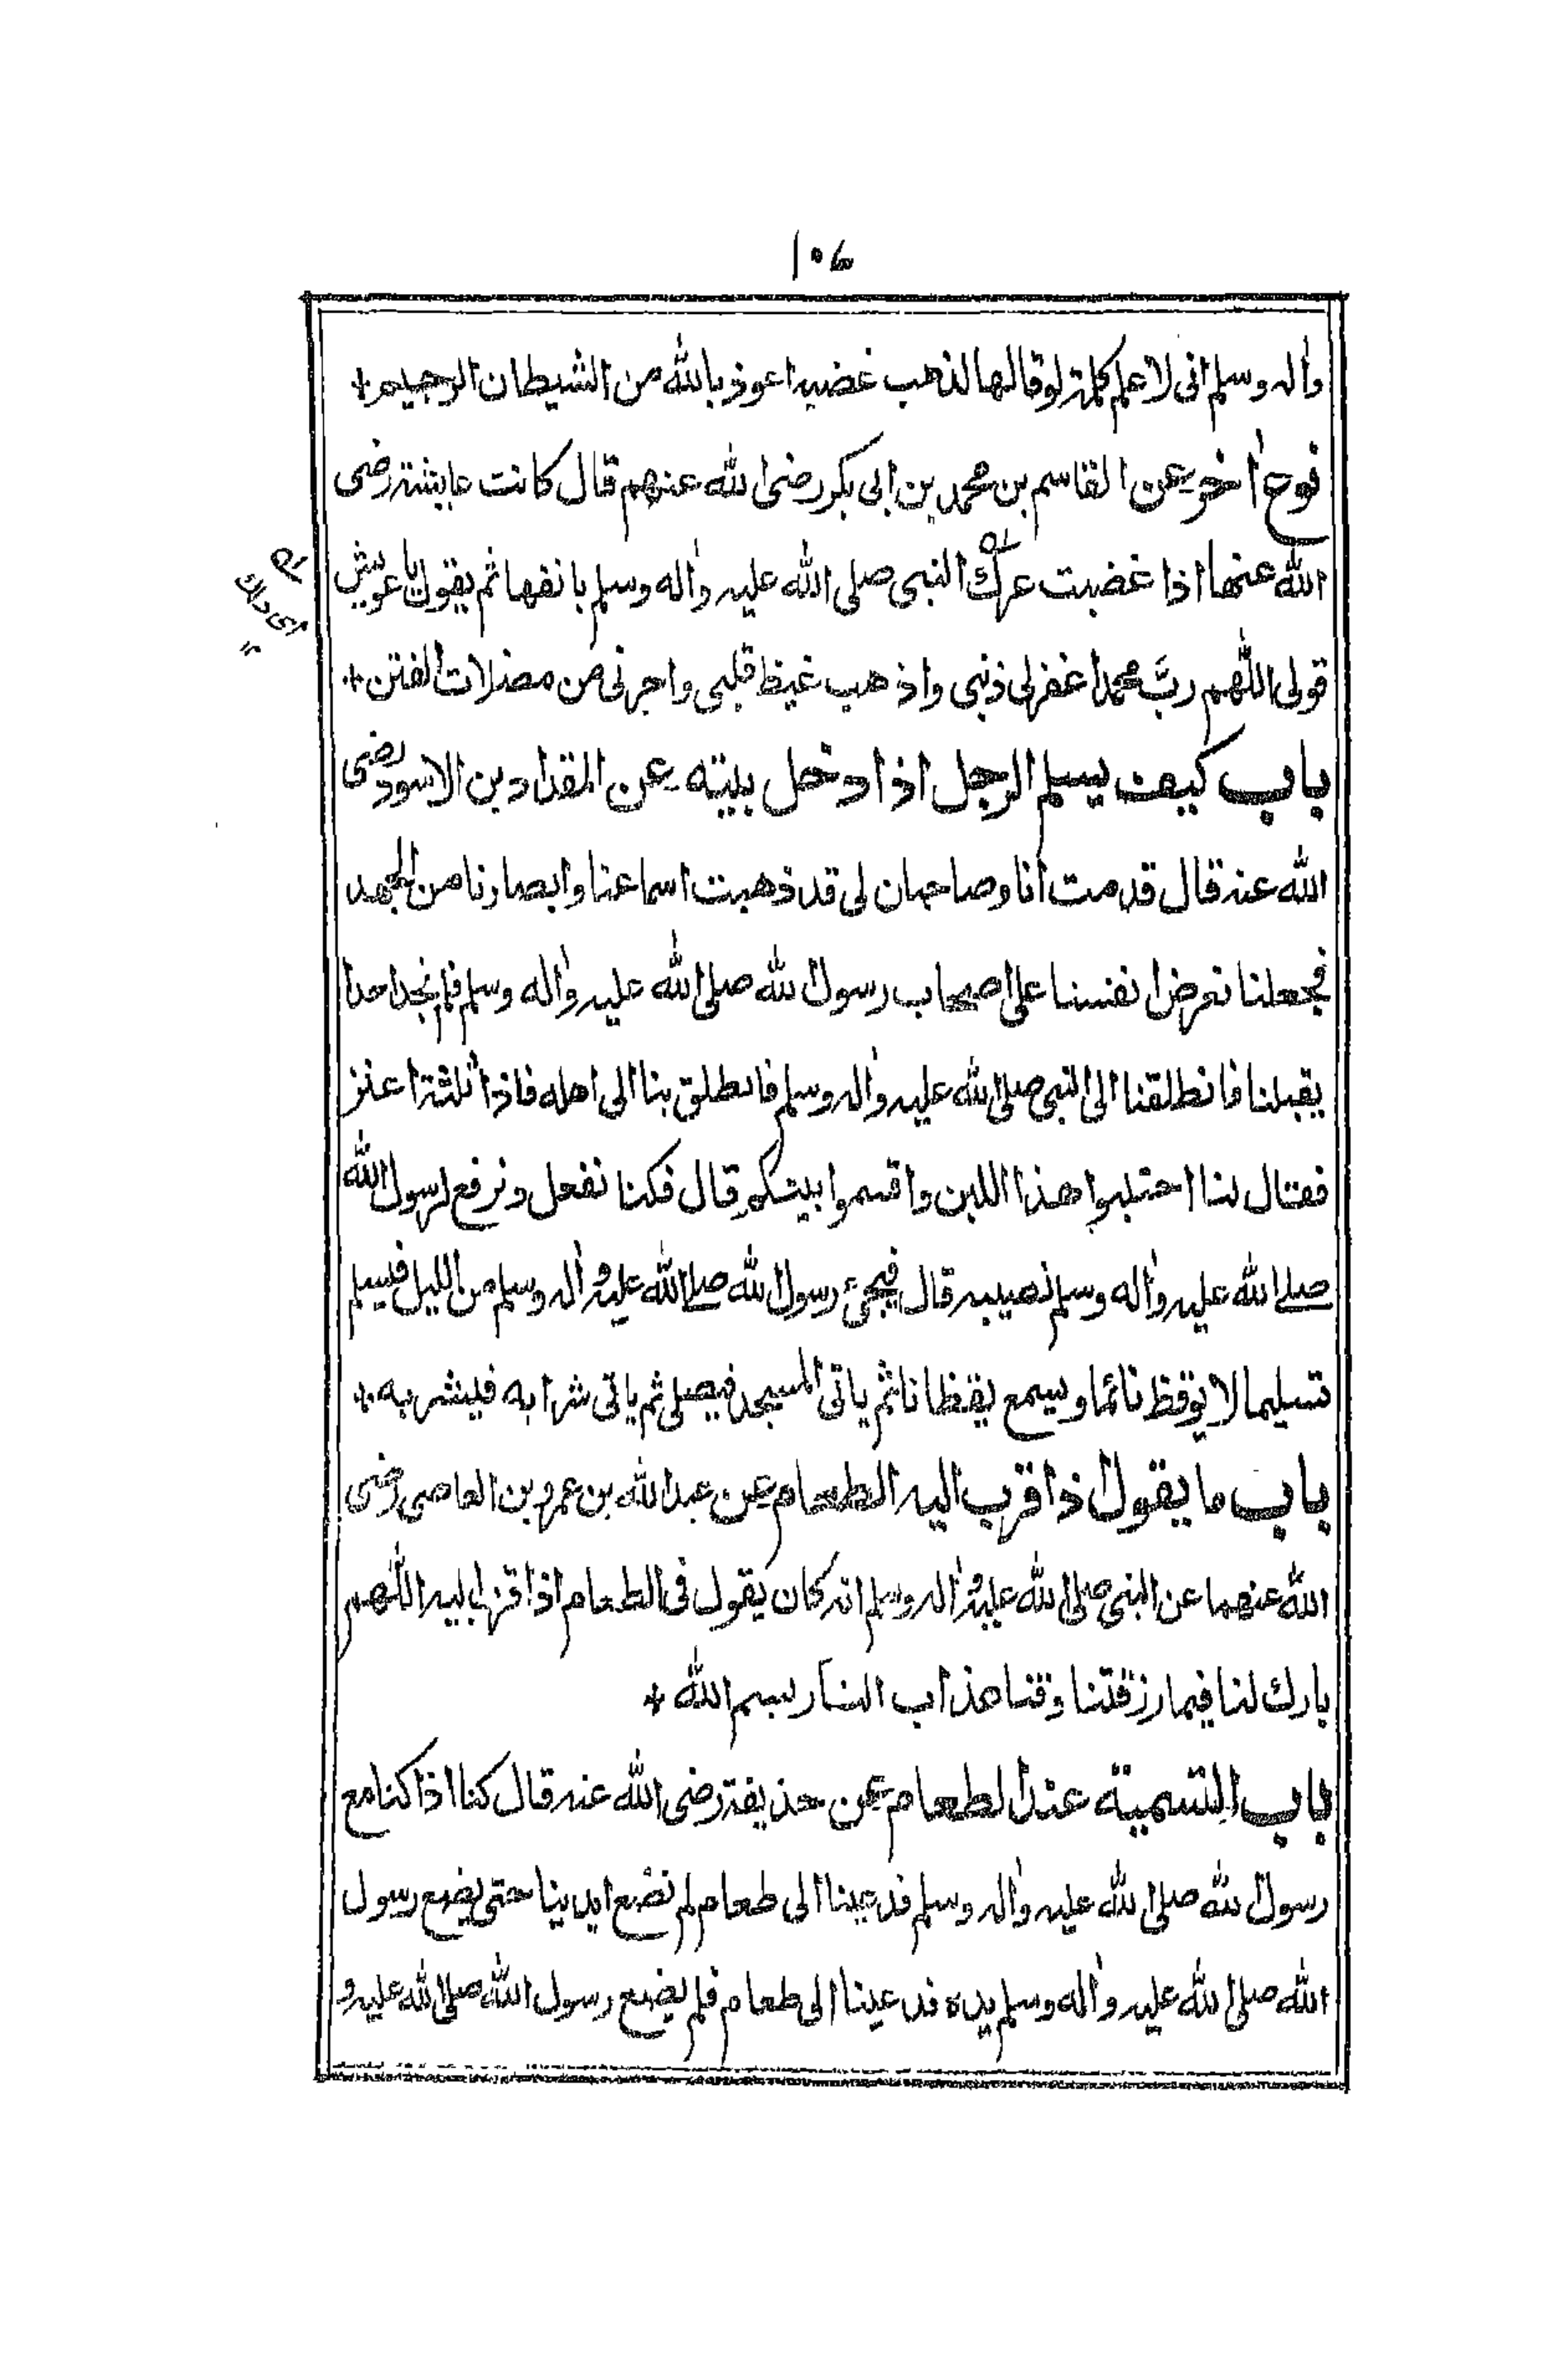 ١٠٤
واٰله وسلم انى لاعلم كلمة لوقالها لذهب غضبه اعوذ بالله من الشيطان الرجيم +
نوع اٰخر عن القاسم بن محمد بن ابى بكر رضى الله عنهم قال كانت عايشة رضى
الله عنها اذا غضبت عرك النبى صلى الله عليه واٰله وسلم بانفها ثم يقول يا عويش
اى دلك ١٢
قولى اللّٰهم ربَّ محمد اغفرلى ذنبى واذهب غيظ قلبى واجرنى من مضلات الفتن +
باب كيف يسلم الرجل اذا دخل بيته عن المقداد بن الاسود رضى
الله عنه قال قدمت انا وصاحبان لى قد ذهبت اسماعنا وابصارنا من الجهد
فجعلنا نعرض انفسنا على اصحاب رسول الله صلى الله عليه واٰله وسلم فلم نجد احدا
يقبلنا فانطلقنا الى النبى صلى الله عليه واٰله وسلم فانطلق بنا الى اهله فاذا ثلثة اعنز
فقال لنا احتلبوا هذا اللبن واقسموا بينكم قال فكنا نفعل ونرفع لرسول الله
صلى الله عليه واٰله وسلم نصيبه قال فيجئ رسول الله صلى الله عليه واٰله وسلم من الليل فيسلم
تسليما لا يوقظ نائما ويسمع يقظانا ثم ياتى المسجد فيصلى ثم ياتى شرابه فيشربه +
باب ما يقول اذا قرب اليه الطعام عن عبد الله بن عمرو بن العاصى رضى
الله عنهما عن النبى صلى الله عليه واٰله وسلم انه كان يقول فى الطعام اذا قرب اليه اللّٰهم
بارك لنا فيما رزقتنا وقنا عذاب النار بسم الله +
باب التسمية عند الطعام عن حذيفة رضى الله عنه قال كنا اذا كنا مع
رسول الله صلى الله عليه واٰله وسلم فدعينا الى طعام لم نضع ايدينا حتى يضع رسول
الله صلى الله عليه واٰله وسلم يده فدعينا الى طعام فلم يضع رسول الله صلى الله عليه و